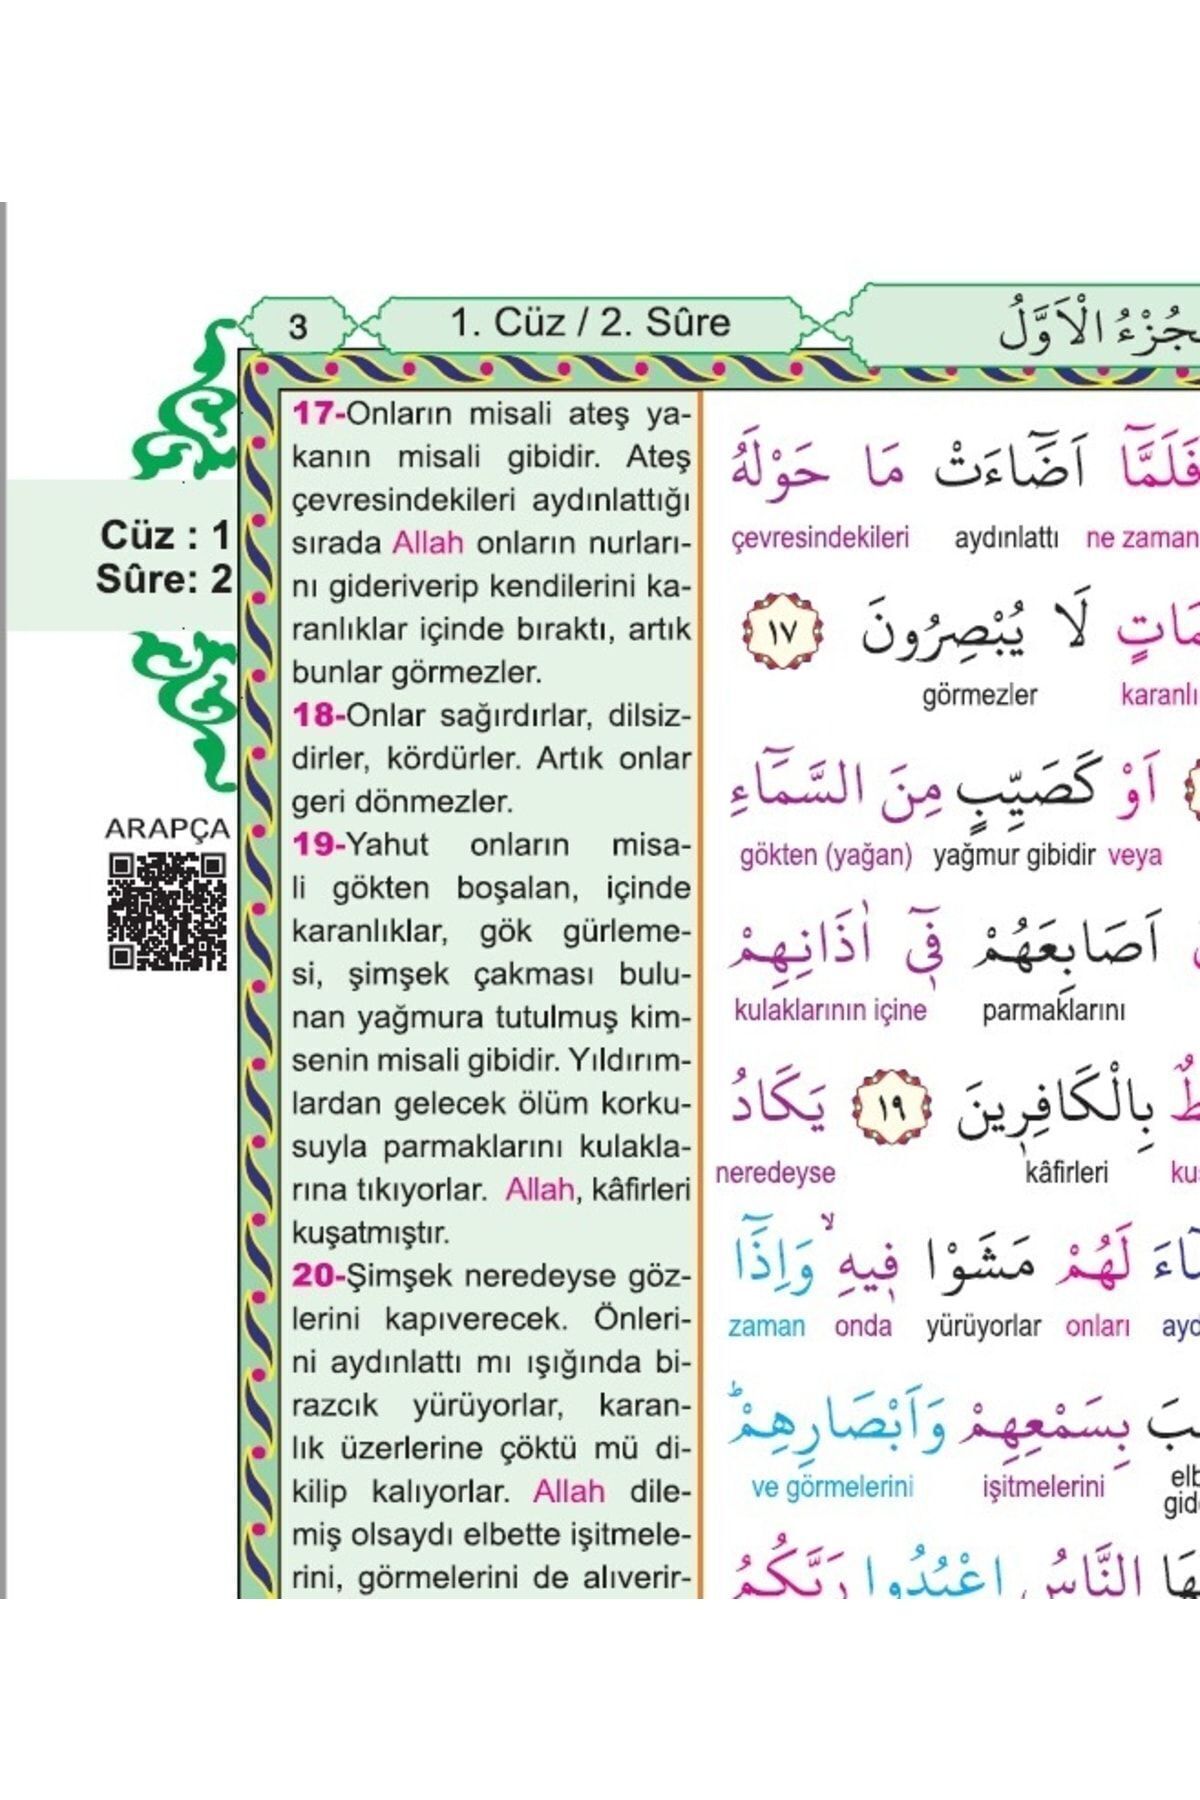 3
1. Cüz / 2. Sûre
الْاَوَّلُ
Cüz : 1
Sûre: 2
ARAPÇA
17-Onların misali ateş ya-
kanın misali gibidir. Ateş
çevresindekileri aydınlattığı
sırada Allah onların nurları-
nı gideriverip kendilerini ka-
ranlıklar içinde bıraktı, artık
bunlar görmezler.
18-Onlar sağırdırlar, dilsiz-
dirler, kördürler. Artık onlar
geri dönmezler.
19-Yahut onların misa-
li gökten boşalan, içinde
karanlıklar, gök gürleme-
si, şimşek çakması bulu-
nan yağmura tutulmuş kim-
senin misali gibidir. Yıldırım-
lardan gelecek ölüm korku-
suyla parmaklarını kulakla-
rına tıkıyorlar. Allah, kâfirleri
kuşatmıştır.
20-Şimşek neredeyse göz-
lerini kapıverecek. Önleri-
ni aydınlattı mı ışığında bi-
razcık yürüyorlar, karan-
lık üzerlerine çöktü mü di-
kilip kalıyorlar. Allah dile-
miş olsaydı elbette işitmele-
rini, görmelerini de alıverir-
فَلَمَّٓا اَضَٓاءَتْ مَا حَوْلَهُ
çevresindekileri aydınlattı ne zaman
لَا يُبْصِرُونَ ١٧
görmezler karanlı
اَوْ كَصَيِّبٍ مِنَ السَّمَٓاءِ
gökten (yağan) yağmur gibidir veya
اَصَابِعَهُمْ فٖٓي اٰذَانِهِمْ
kulaklarının içine parmaklarını
بِالْكَافِرٖينَ ١٩ يَكَادُ
neredeyse kâfirleri kuş
لَهُمْ مَشَوْا فٖيهِۙ وَاِذَٓا
zaman onda yürüyorlar onları ayd
بِسَمْعِهِمْ وَاَبْصَارِهِمْؕ
ve görmelerini işitmelerini elb
gide
النَّاسُ اعْبُدُوا رَبَّكُمُ